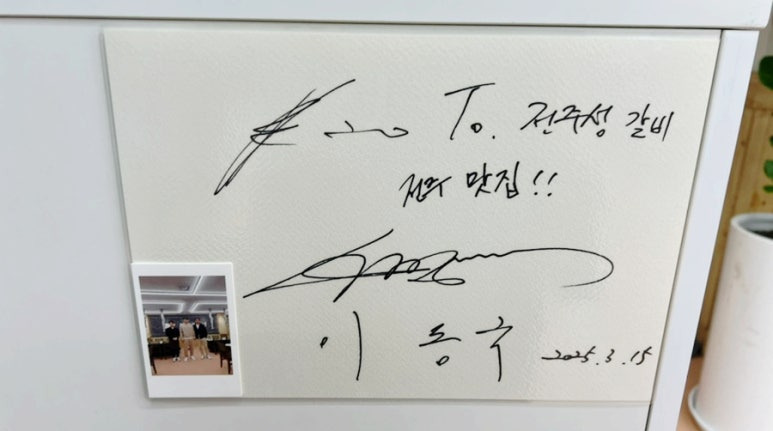 #20 To. 전주생갈비
전주 맛집!!
이동국 2025.3.15